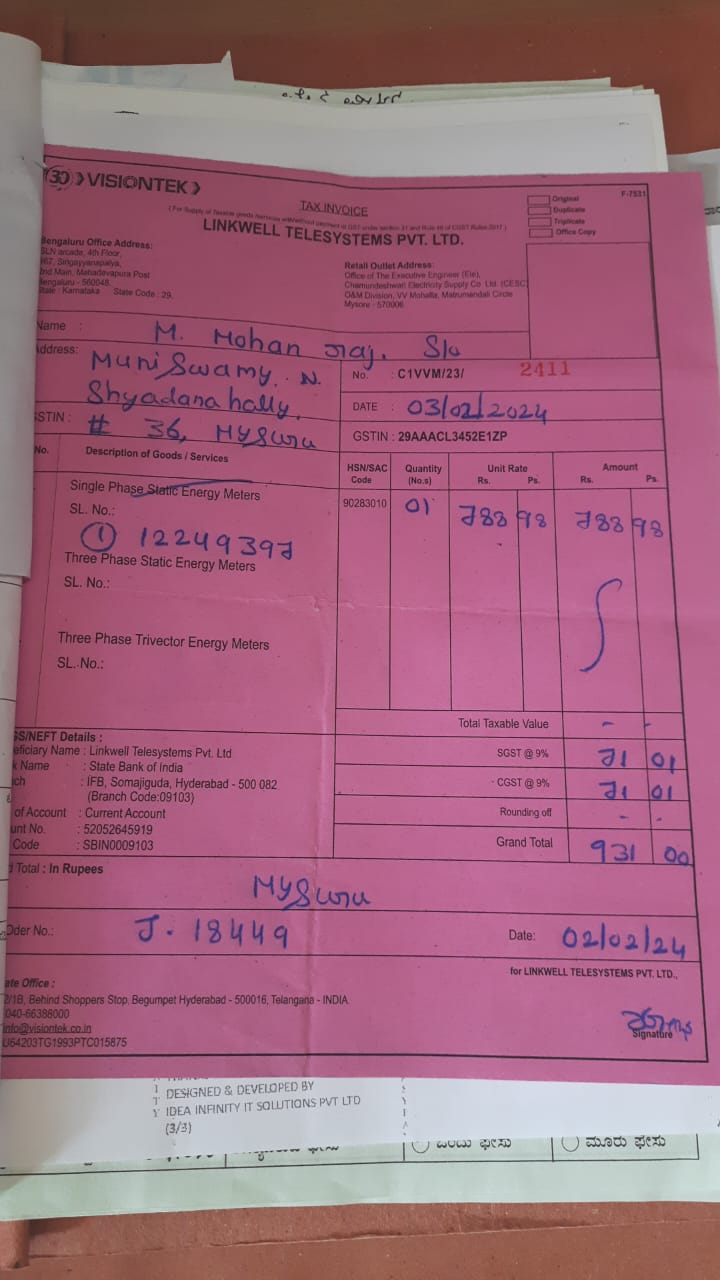 30 VISIONTEK
TAX INVOICE
F-7531
Original
Duplicate
Triplicate
Office Copy
LINKWELL TELESYSTEMS PVT. LTD.
Bengaluru Office Address:
SLN arcade, 4th Floor,
Singayyanapalya,
2nd Main, Mahadevapura Post
Bengaluru - 560048.
State : Karnataka State Code : 29.
Retail Outlet Address:
Office of The Executive Engineer (Ele),
Chamundeshwari Electricity Supply Co. Ltd. (CESC)
O&M Division, VV Mohalla, Matrumandali Circle
Mysore - 570006
Name : M. Mohan raj. S/o
Address: Muni Swamy. N.
Shyadanahally.
# 36, Mysuru
No. : C1VVM/23/ 2411
DATE : 03/02/2024
GSTIN :
GSTIN : 29AAACL3452E1ZP
No. Description of Goods / Services HSN/SAC Code Quantity (No.s) Unit Rate Rs. Ps. Amount Rs. Ps.
Single Phase Static Energy Meters 90283010 01 788 98 788 98
SL. No.:
① 12249397
Three Phase Static Energy Meters
SL. No.:
Three Phase Trivector Energy Meters
SL. No.:
Total Taxable Value - -
GS/NEFT Details :
eficiary Name : Linkwell Telesystems Pvt. Ltd
k Name : State Bank of India
ch : IFB, Somajiguda, Hyderabad - 500 082
(Branch Code:09103)
of Account : Current Account
unt No. : 52052645919
Code : SBIN0009103
SGST @ 9% 71 01
CGST @ 9% 71 01
Rounding off - -
Grand Total 931 00
d Total : In Rupees
Mysuru
Oder No.: J. 18449 Date: 02/02/24
for LINKWELL TELESYSTEMS PVT. LTD.,
ate Office :
2/1B, Behind Shoppers Stop, Begumpet Hyderabad - 500016, Telangana - INDIA
040-66388000
info@visiontek.co.in
U64203TG1993PTC015875
Signature
DESIGNED & DEVELOPED BY
IDEA INFINITY IT SOLUTIONS PVT LTD
(3/3)
ಒಂದು ಫೇಸು
ಮೂರು ಫೇಸು